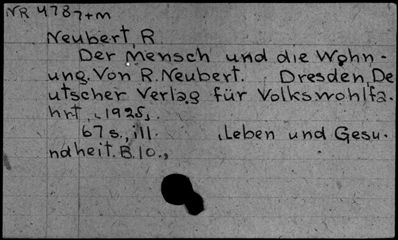 NR 4787+m
Neubert, R
Der Mensch und die Wohn-
ung. Von R. Neubert. Dresden, De
utscher Verlag für Volkswohlfa.
hrt, 1925.
67 s., ill. (Leben und Gesu-
ndheit. B. 10.,